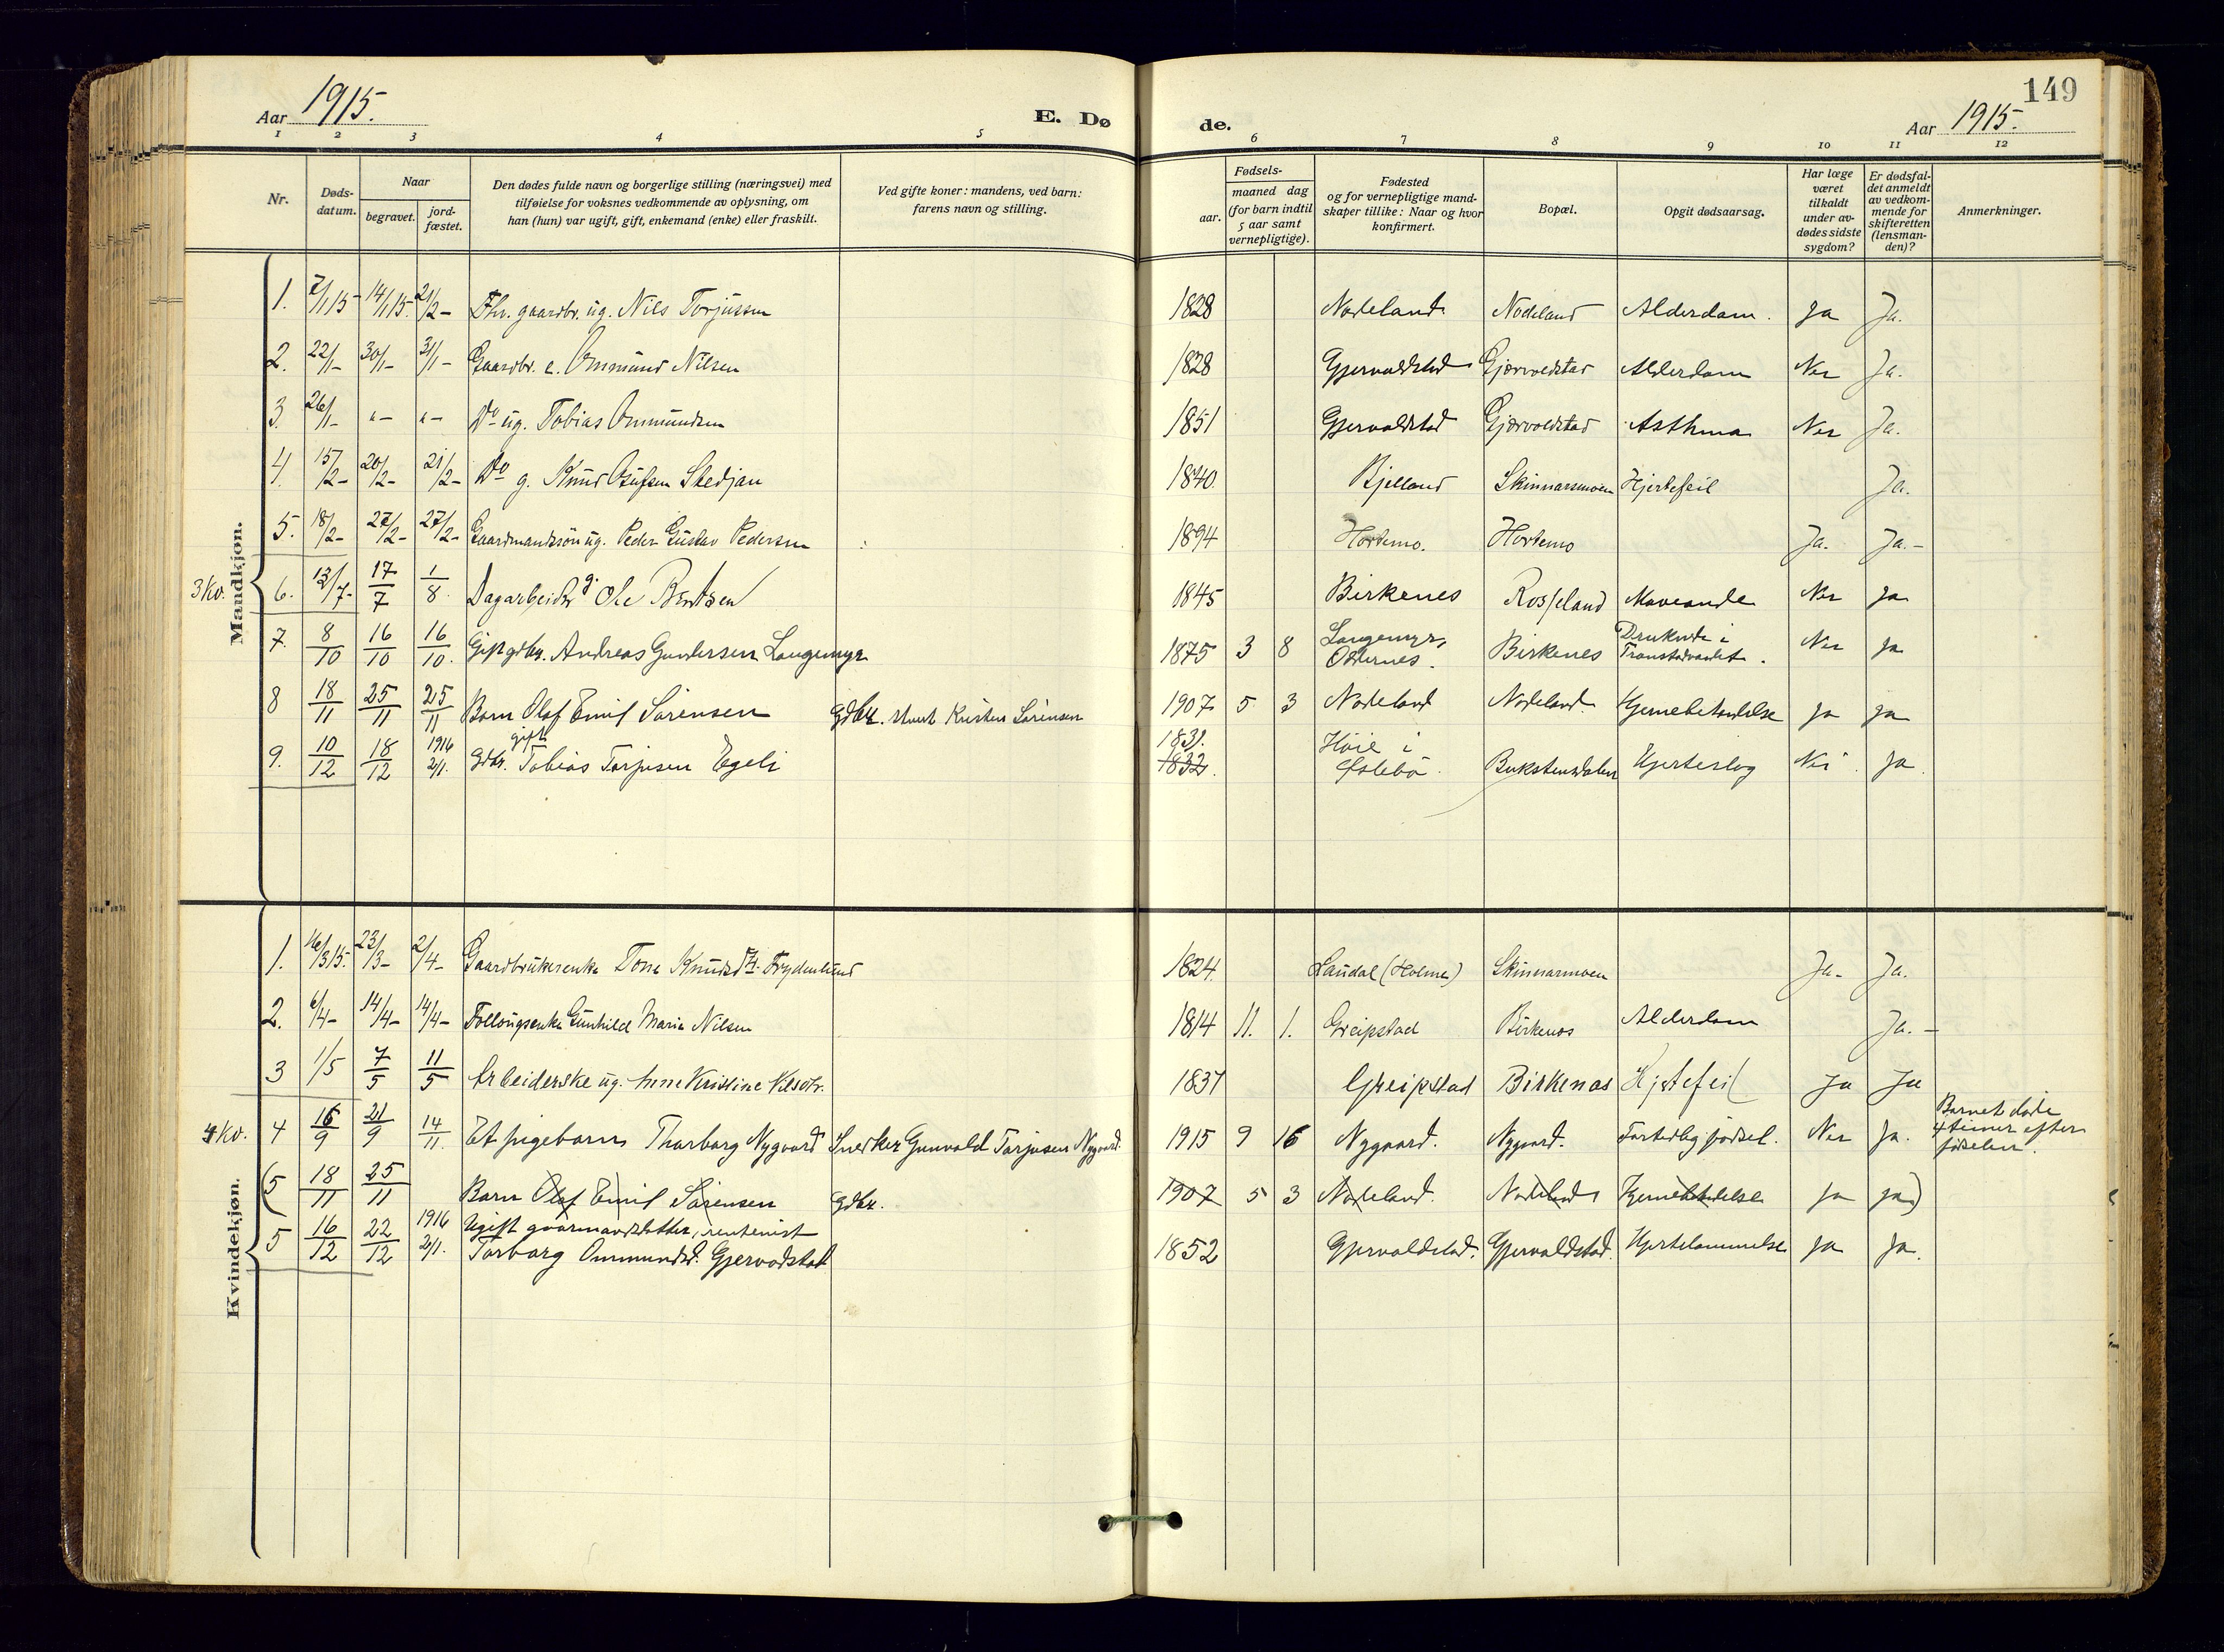 149
Aar 1915.
E. Dø
de.
Aar 1915.
1 2 3 4 5 6 7 8 9 10 11 12
Nr.
Døds-
datum.
Naar
begravet.
jord-
fæstet.
Den dødes fulde navn og borgerlige stilling (næringsvei) med
tilføielse for voksnes vedkommende av oplysning, om
han (hun) var ugift, gift, enkemand (enke) eller fraskilt.
Ved gifte koner: mandens, ved barn:
farens navn og stilling.
Fødsels-
aar.
maaned dag
(for barn indtil
5 aar samt
vernepligtige).
Fødested
og for vernepligtige mand-
skaper tillike: Naar og hvor
konfirmert.
Bopæl.
Opgit dødsaarsag.
Har læge
været
tilkaldt
under av-
dødes sidste
sygdom?
Er dødsfal-
det anmeldt
av vedkom-
mende for
skifteretten
(lensman-
den)?
Anmerkninger.
Mandkjøn.
3 Kv.
1. 7/1 15 14/1 15. 21/2 - Fhv. gaardbr. ug. Nils Torjussen 1828 Nodeland Nodeland Alderdom. Ja Ja.
2. 22/1 - 30/1 - 31/1 - Gaardbr. e. Ommund Nilsen 1828 Gjervoldstad Gjervoldstad Alderdom Nei Ja.
3. 26/1 - "- "- Do ug. Tobias Ommundsen 1851 Gjervoldstad Gjervoldstad Asthma Nei Ja.
4. 15/2 - 20/2 - 21/2 - Do g. Knud Osufsen Stedjan 1840. Bjelland Skinnarsmoen Hjertefeil Ja.
5. 18/2 - 27/2 - 27/2 - Gaardmandssøn ug. Peder Gustav Pedersen 1894 Hortemo. Hortemo Ja. Ja. -
6. 13/7 - 17/7 1/8. Dagarbeider g. Ole Bentsen 1845 Birkenes Rosseland Maveonde Nei Ja
7. 8/10 16/10 16/10. Gift gdbr. Andreas Gundersen Langemyr 1875 3 8 Langemyr, Birkenes Druknede i Nei Ja
Oddernes. Tronstadvandet.
8 18/11 25/11 25/11 Barn Olaf Emil Sørensen Gdbr. Kristen Sørensen 1907 5 3 Nodeland Nodeland Hjernebetændelse Ja Ja
9. 10/12 18/12 1916 2/1. gdbr. gift Tobias Torjusen Egeli 1831. 1832. Høie i Bukstensdalen Hjerteslag Nei Ja.
Øslebø.
Kvindekjøn.
4 Kv.
1. 16/3 15. 23/3 - 2/4 - Gaardbrukerenke Tone Knudsdt. Frydenlund 1824. Laudal (Holme) Skinnarmoen Ja - Ja.
2. 6/4 - 14/4 - 14/4 - Follougsenke Gunhild Marie Nilsen 1814 11. 1. Greipstad Birkenes Alderdom Ja. -
3 1/5 7/5 11/5 Arbeiderske ug. Anne Kristine Nilsdtr. 1837 Greipstad Birkenas Hjertefeil Ja Ja
4 16/9 21/9 14/11. Et pigebarn Thorborg Nygaard Snedker Gunvald Torjusen Nygaard 1915 9 16 Nygaard. Nygaard. Fortidlig fødsel. Nei Ja. Barnet døde
4 timer efter
fødselen.
(5 18/11 25/11 Barn Olaf Emil Sørensen gdbr. 1907 5 3 Nodeland. Nodeland Hjernebetændelse Ja Ja)
5 16/12 22/12 1916 2/1. Ugift gaarmansdatter, rentenist
Torborg Ommundsd. Gjervodstad 1852 Gjervoldstad. Gjervoldstad. Hjertelammelse Ja Ja.